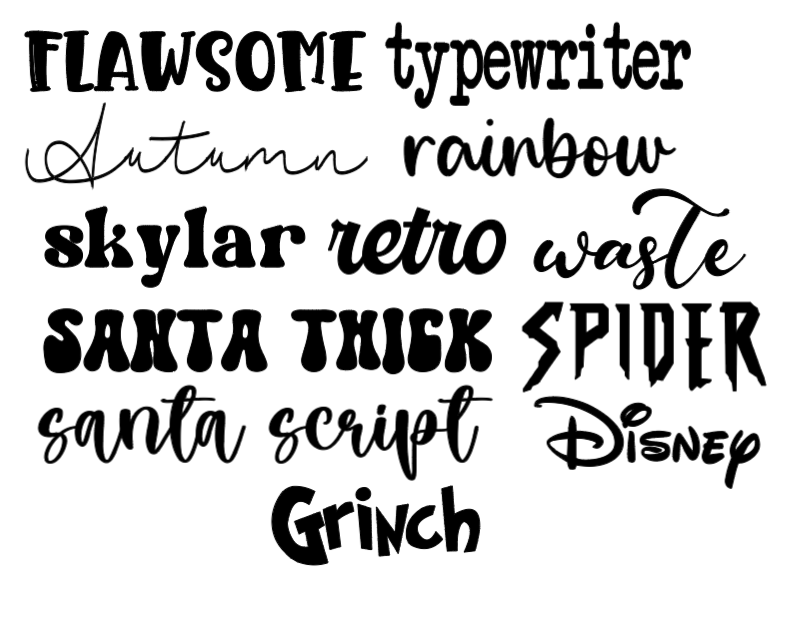 FLAWSOME typewriter
Autumn rainbow
skylar retro waste
SANTA THICK SPIDER
santa script Disney
Grinch